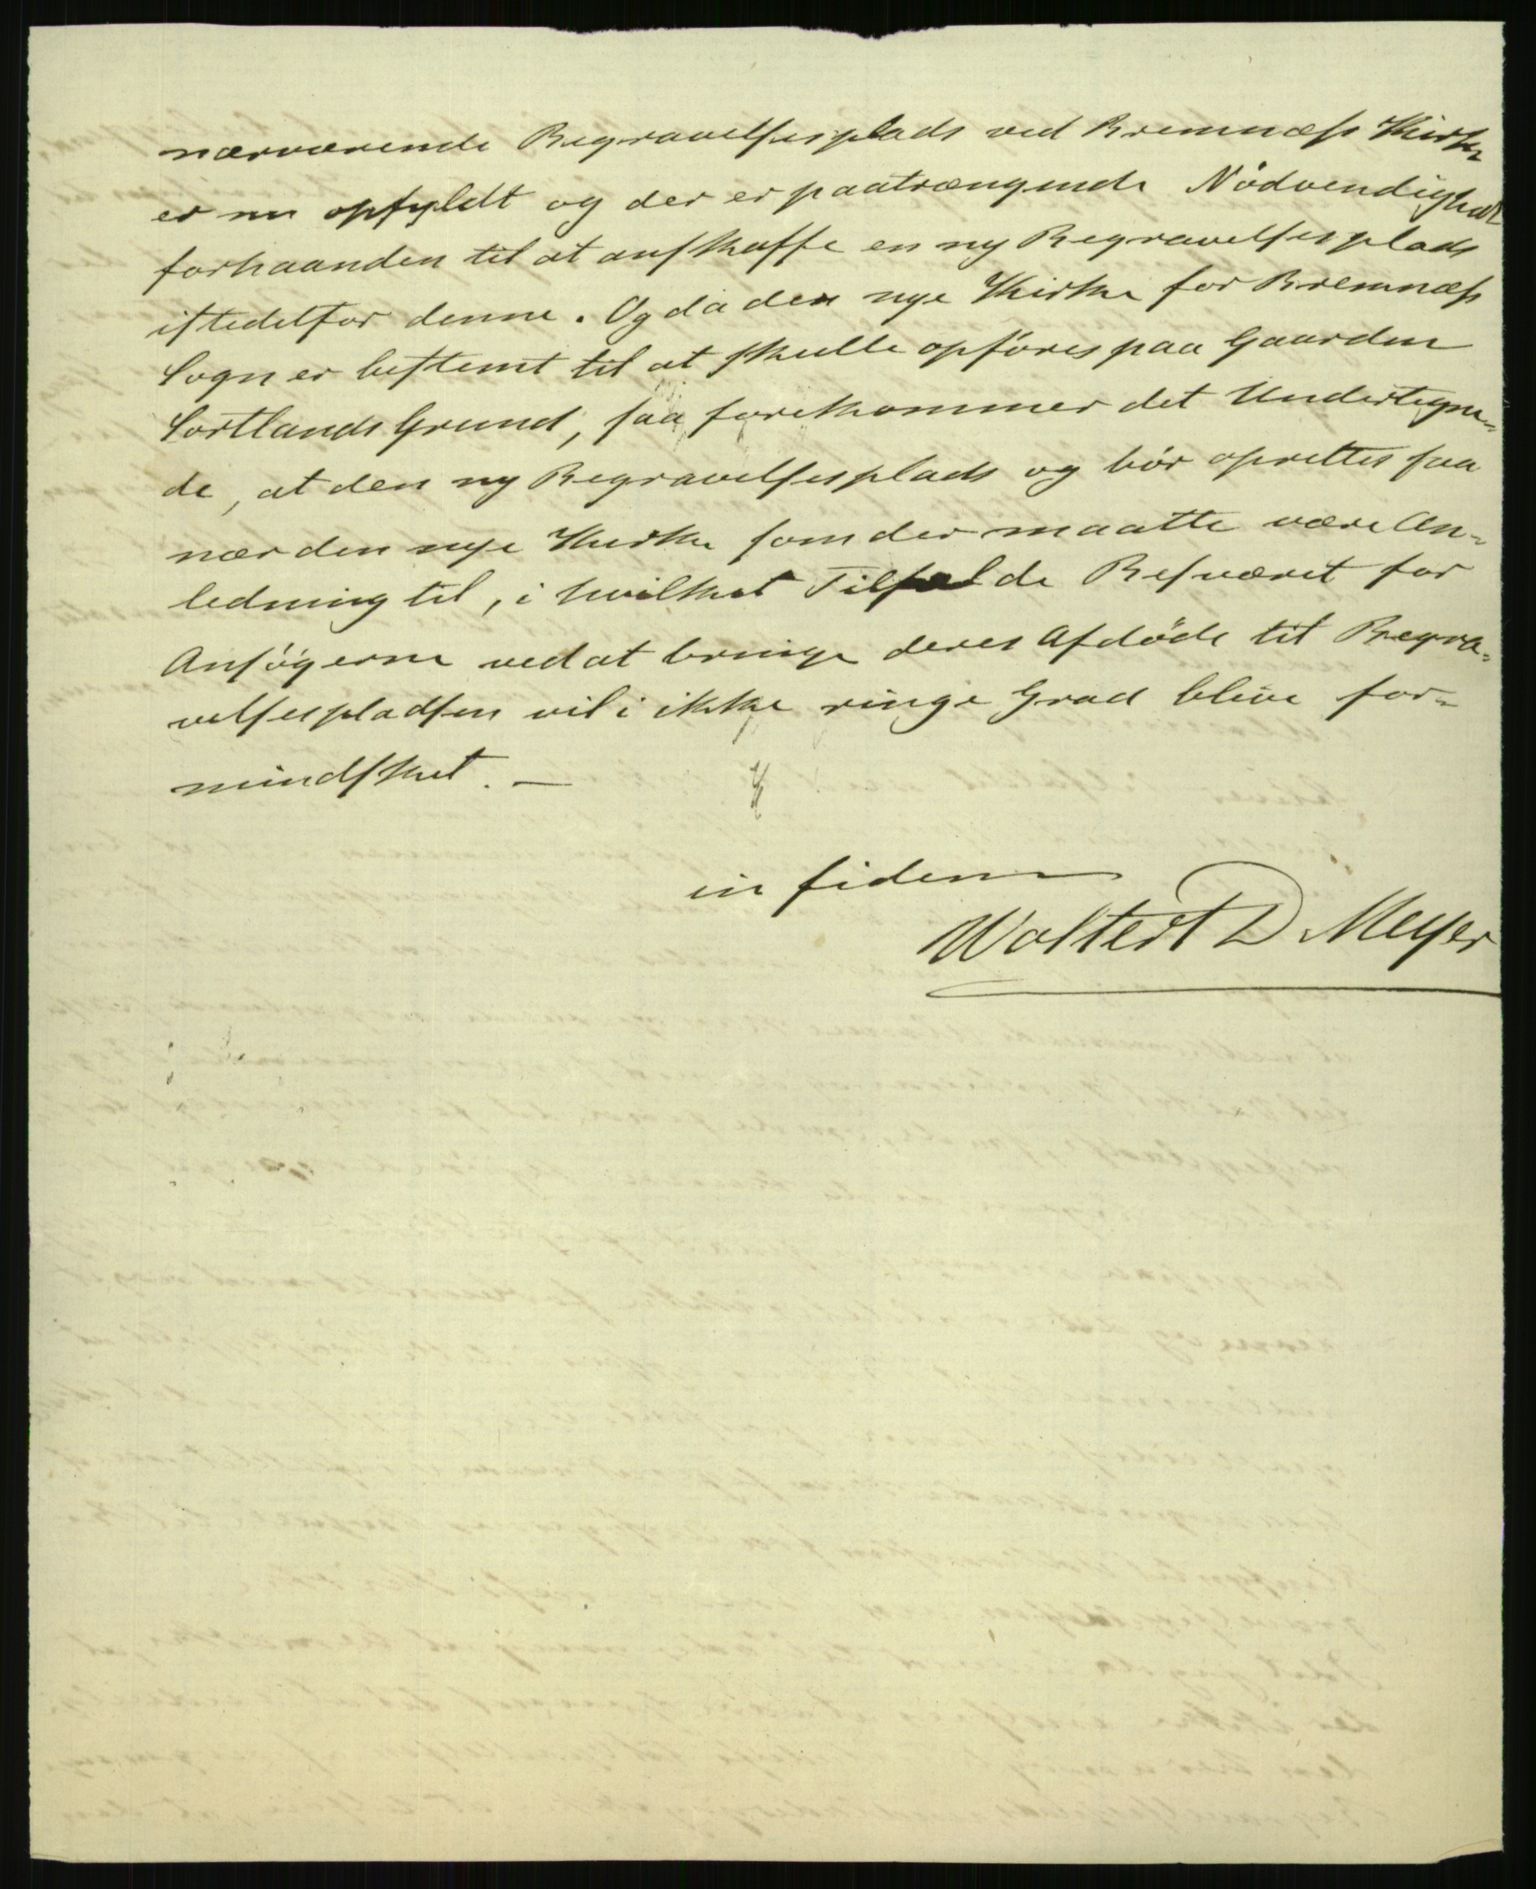 nærværende Begravelsesplads ved Bremnæs Kirke
er nu opfyldt og der er paatrængende Nödvendighed
forhaanden til at anskaffe en ny Begravelsesplads
istedetfor denne. Og da den nye Kirke for Bremnæs
Sogn er bestemt til at skulle opföres paa Gaarden
Sortlands Grund, saa forekommer det Undertegne-
de, at den ny Begravelsesplads og bör oprettes saa
nær den nye Kirke som der maatte være An-
ledning til, i hvilket Tilfælde Besværet for
Ansögerne ved at bringe deres Afdöde til Begra-
velsespladsen vil i ikke ringe Grad blive for-
mindsket. —
in fidem
Woltert D Meyer